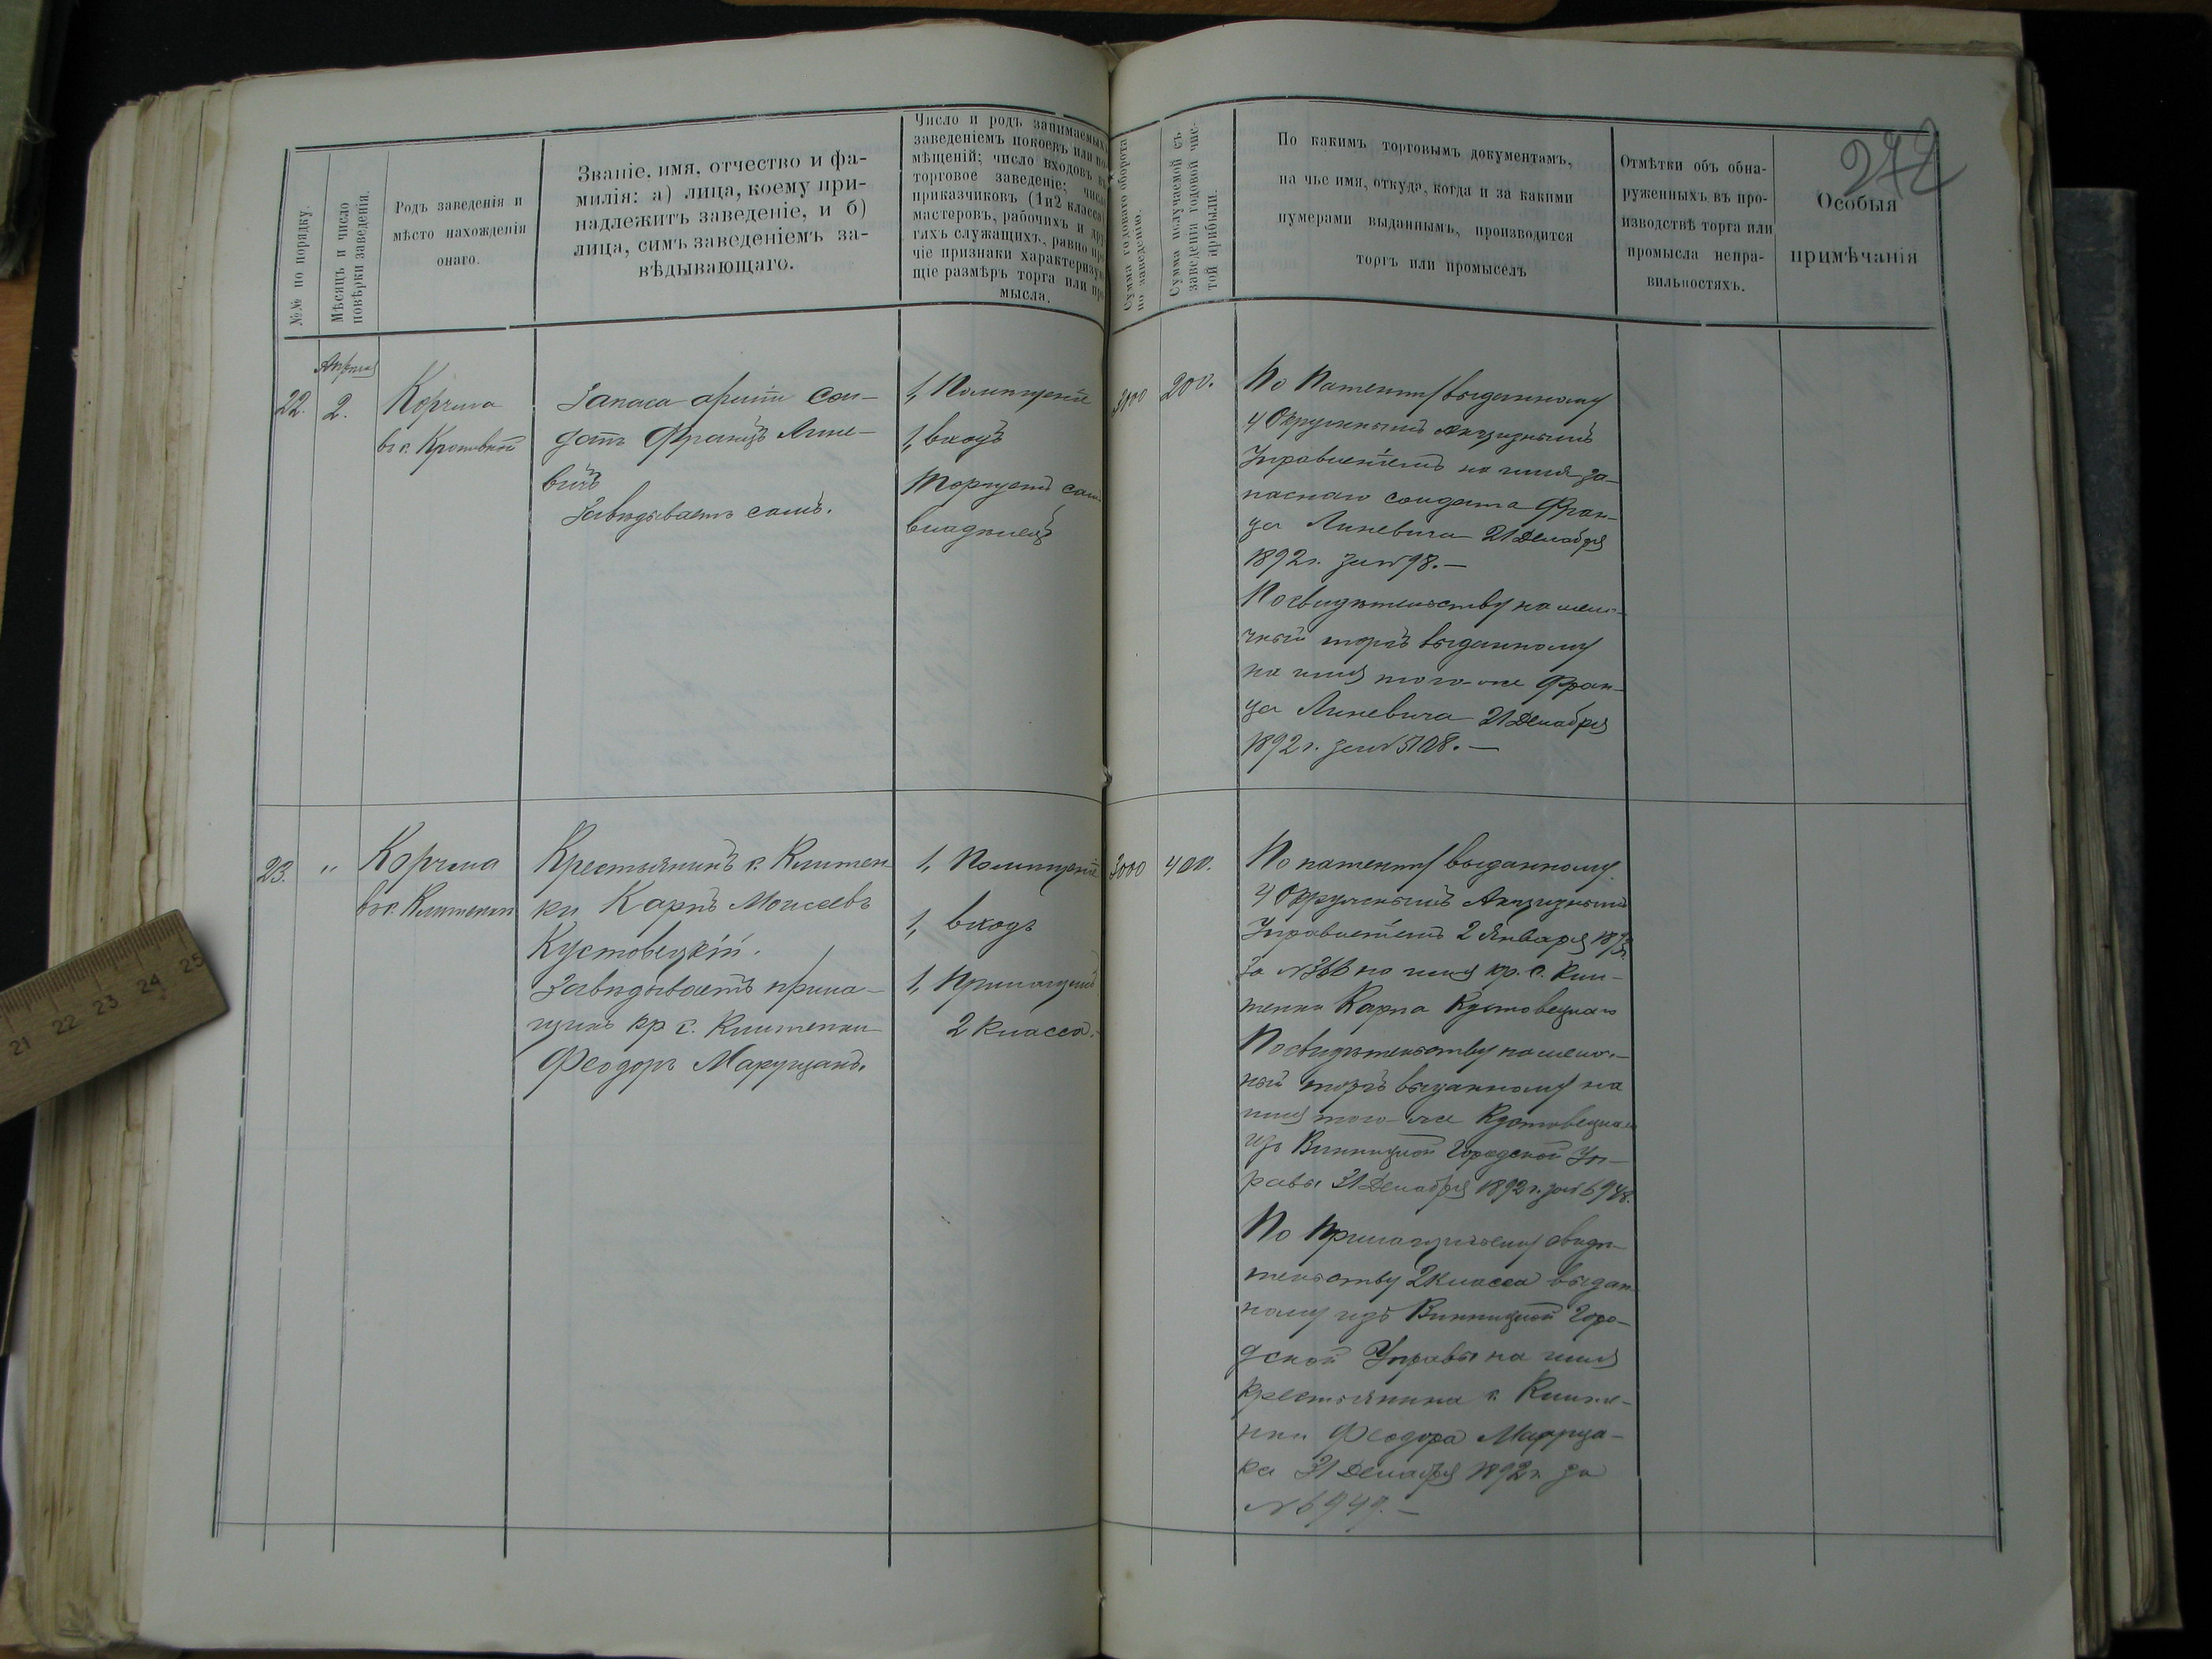 272
№№ по порядку.
Мѣсяцъ и число
повѣрки заведенія.
Родъ заведенія и
мѣсто нахожденія
онаго.
Званіе, имя, отчество и фа-
милія: а) лица, коему при-
надлежитъ заведеніе, и б)
лица, симъ заведеніемъ за-
вѣдывающаго.
Число и родъ занимаемыхъ
заведеніемъ покоевъ или по-
мѣщеній; число входовъ въ
торговое заведеніе; число
приказчиковъ (1 и 2 класса)
мастеровъ, рабочихъ и дру-
гихъ служащихъ, равно про-
чіе признаки характеризую-
щіе размѣръ торга или про-
мысла.
Сумма годоваго оборота
по заведенію.
Сумма получаемой съ
заведенія годовой чис-
той прибыли.
По какимъ торговымъ документамъ,
на чье имя, откуда, когда и за какими
нумерами выданнымъ, производится
торгъ или промыселъ
Отмѣтки объ обна-
руженныхъ въ про-
изводствѣ торга или
промысла непра-
вильностяхъ.
Особыя
примѣчанія
Апрѣля
22.
2.
Корчма
въ с.
Запаса арміи сол-
датъ Францъ Лине-
вичъ
Завѣдываетъ самъ.
1, Помѣщеніе
1, входъ
Торгуетъ сам.
владѣлецъ
3000
200.
По Патенту выданному
4 Окружнымъ Акцизнымъ
Управленіемъ на имя за-
паснаго солдата Фран-
ца Линевича 21 Декабря
1892 г. за № 98. —
По свидѣтельству на мело-
чный торгъ выданному
на имя того-же Фран-
ца Линевича 21 Декабря
1892 г. за № 5108. —
23.
"
Корчма
въ с. Клитенки
Крестьянинъ с. Клитен
ки Карпъ Моисеевъ
Кустовецкій.
Завѣдываетъ прика-
щикъ кр с. Клитенки
Феодоръ Марущакъ.
1, Помѣщеніе
1, входъ
1, Прикащикъ
2 класса.
3000
400.
По патенту выданному
4 Окружнымъ Акцизнымъ
Управленіемъ 2 Января 1893 г.
за № 366 на имя кр. с. Кли-
тенки Карпа Кустовецкаго
По свидѣтельству на мелоч-
ный торгъ выданному на
имя того-же Кустовецкаго
изъ Винницкой Городской Уп-
равы 31 Декабря 1892 г. за № 6948.
По Прикащичьему свидѣ-
тельству 2 класса выдан-
ному изъ Винницкой Горо-
дской Управы на имя
Крестьянина с. Клите-
нки Феодора Маруща-
ка 31 Декабря 1892 г. за
№ 6949. —
21 22 23 24 25